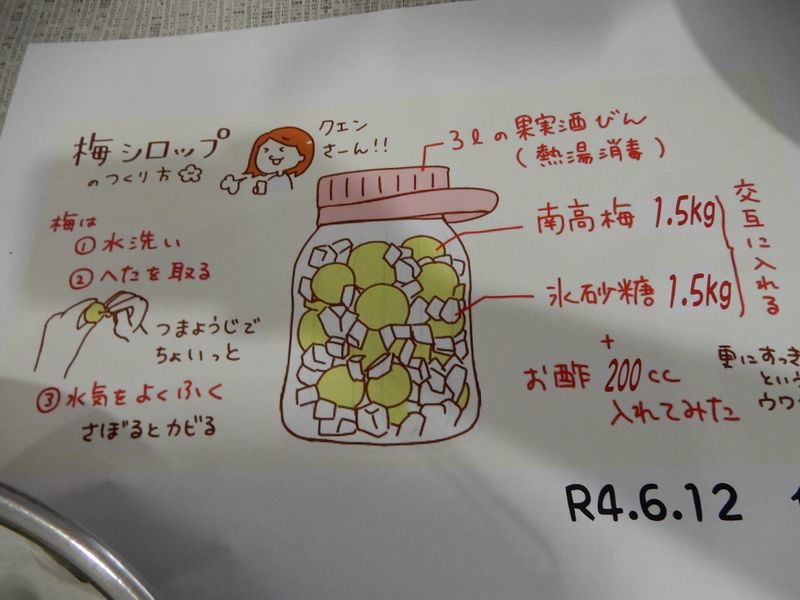 梅シロップ
のつくり方
クエン
さーん!!
3ℓの果実酒びん
(熱湯消毒)
梅は
①水洗い
②へたを取る
つまようじで
ちょいっと
③水気をよくふく
さぼるとカビる
南高梅 1.5kg
氷砂糖 1.5kg
交互に入れる
+
お酢 200cc
入れてみた
更にすっき
という
ウワ
R4.6.12